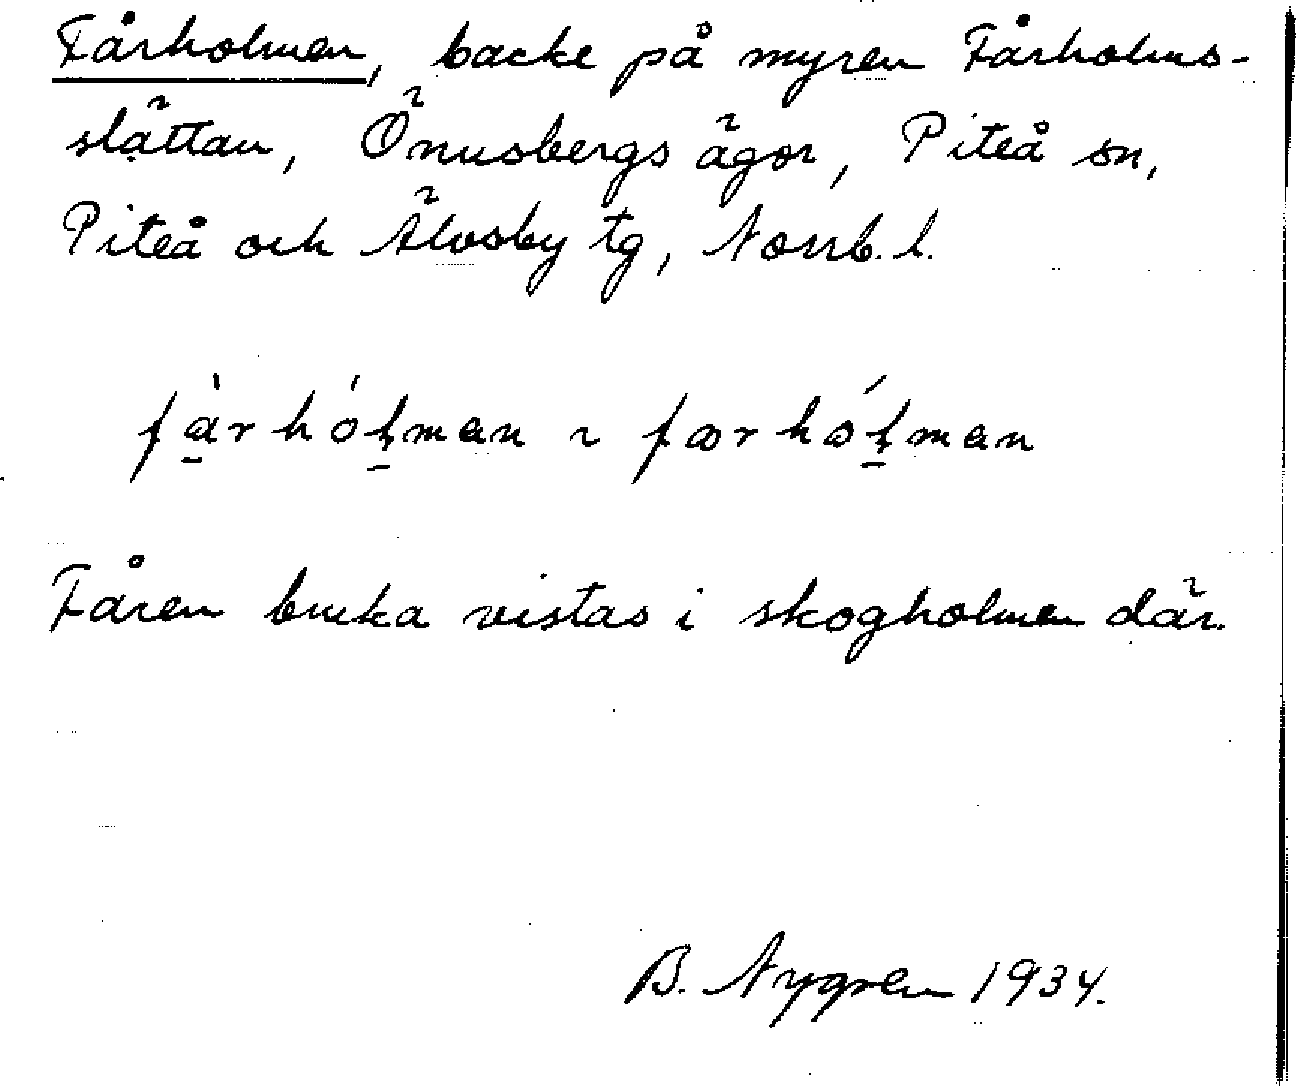 Fårholmen, backe på myren Fårholms-
slättan, Önusbergs ägor, Piteå sn,
Piteå och Älvsby tg, Norrb. l.
fàrhóḷman ~ færhóḷman
Fåren bruka vistas i skogholmen där.
B. Nygren 1934.